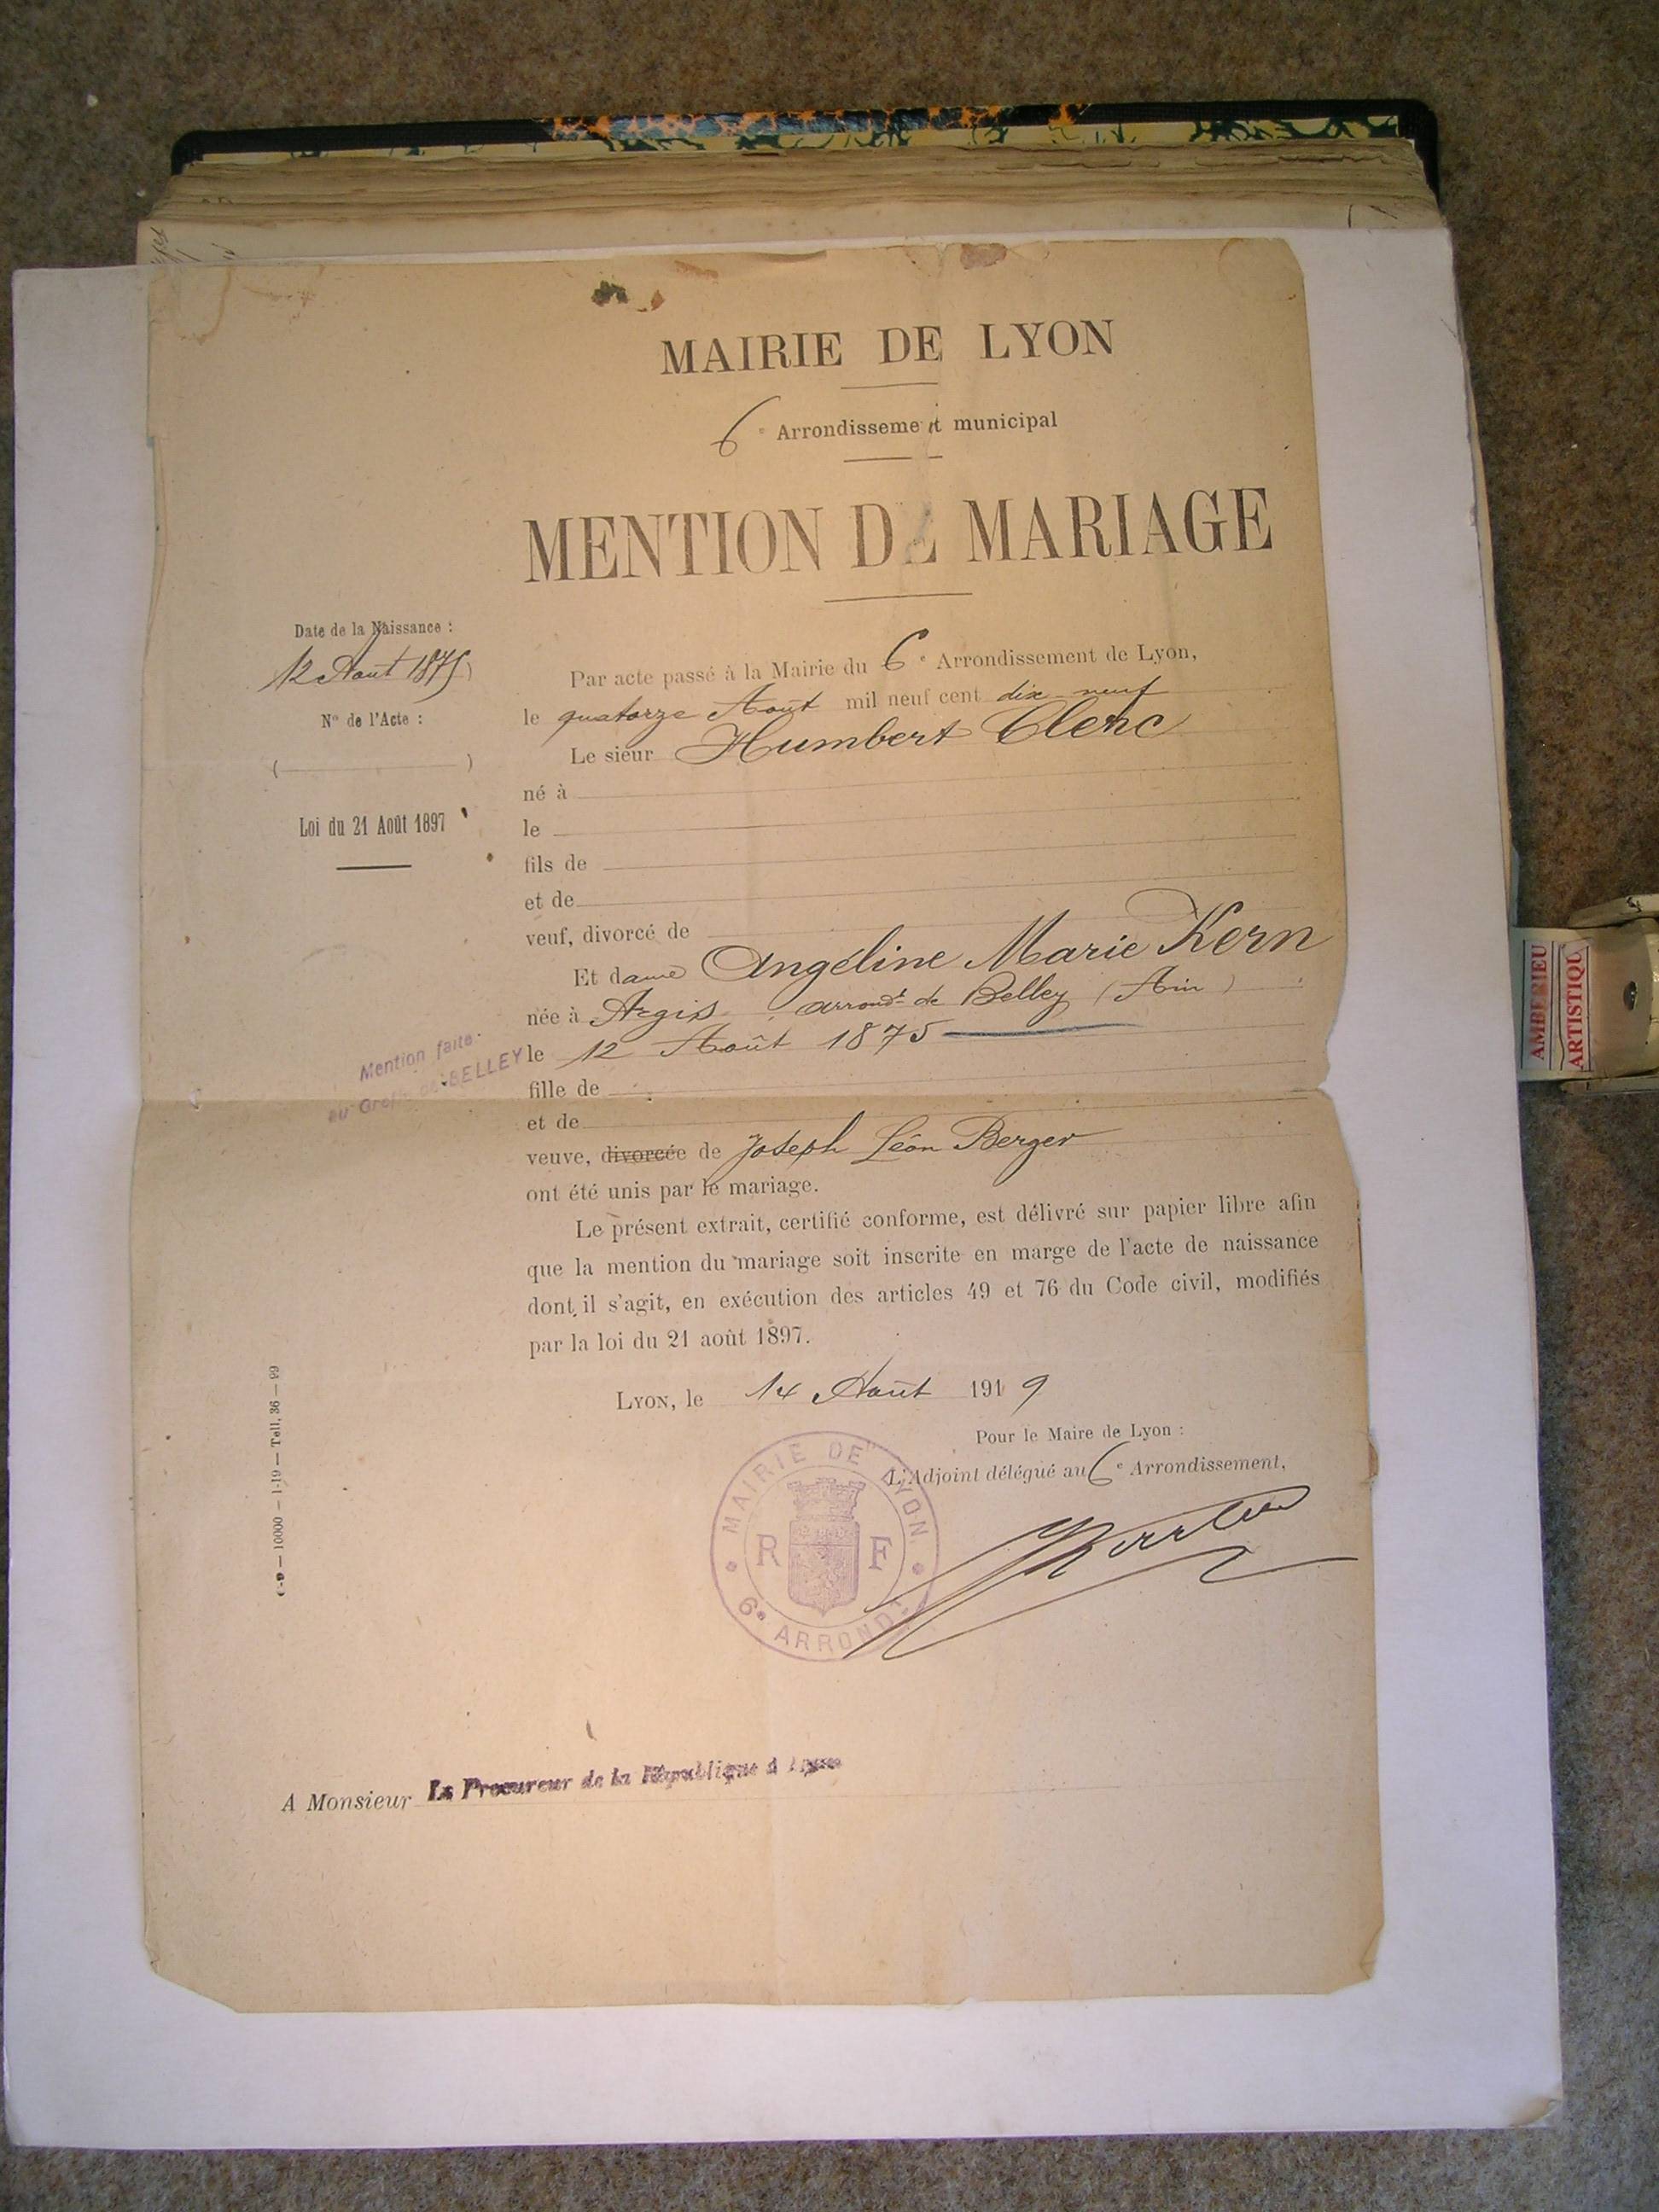 MAIRIE DE LYON
6e Arrondissement municipal
MENTION DE MARIAGE
Date de la Naissance :
12 Août 1875
No de l'Acte :
( )
Loi du 21 Août 1897
Par acte passé à la Mairie du 6e Arrondissement de Lyon,
le quatorze Août mil neuf cent dix neuf
Le sieur Humbert Clerc
né à
le
fils de
et de
veuf, divorcé de
Et dame Angéline Marie Kern
née à Argis arrondt de Belley (Ain)
le 12 Août 1875
fille de
et de
veuve, divorcée de Joseph Léon Berger
ont été unis par le mariage.
Mention faite
au Greffe de BELLEY
Le présent extrait, certifié conforme, est délivré sur papier libre afin
que la mention du mariage soit inscrite en marge de l'acte de naissance
dont il s'agit, en exécution des articles 49 et 76 du Code civil, modifiés
par la loi du 21 août 1897.
Lyon, le 14 Août 1919
Pour le Maire de Lyon :
L'Adjoint délégué au 6e Arrondissement,
MAIRIE DE LYON
R F
6e ARRONDT
10000 — 1-19 — Tell. 36 — 99
A Monsieur Le Procureur de la République à
AMBERIEU
ARTISTIQU